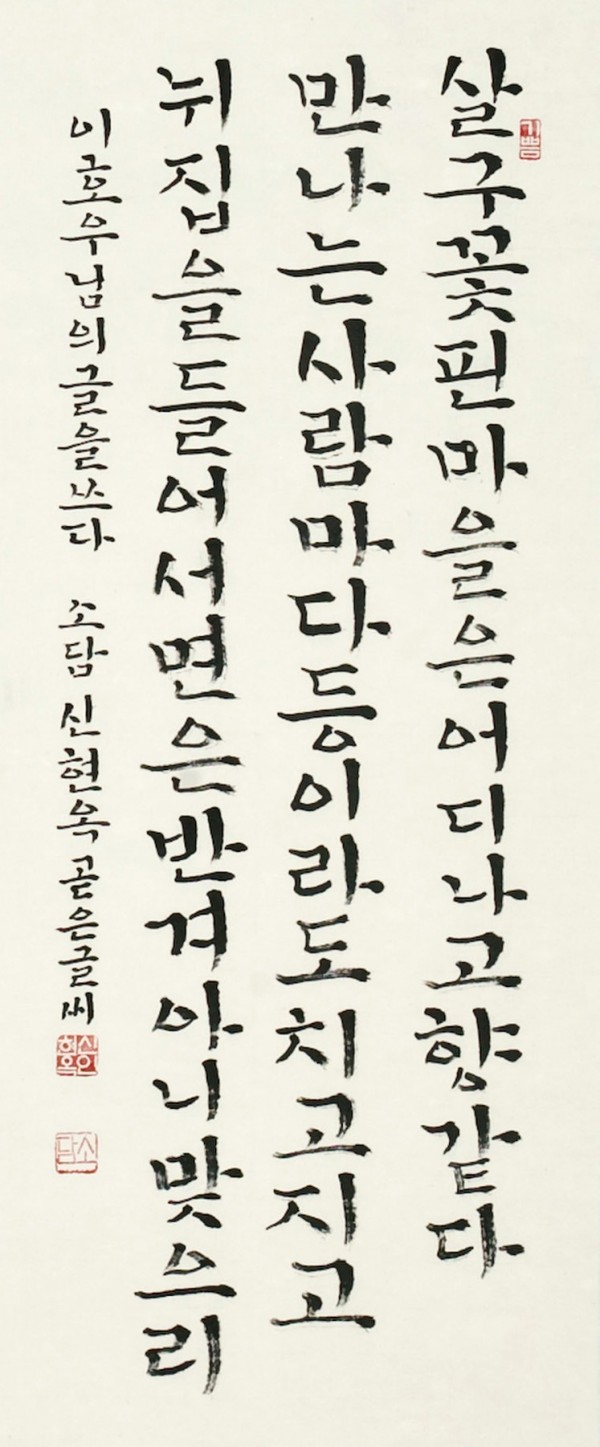 살구꽃핀마을은어디나고향같다
만나는사람마다등이라도치고지고
뉘집을들어서면은반겨아니맞으리
이호우님의글을쓰다 소담신현옥곧은글씨
신현옥
소담